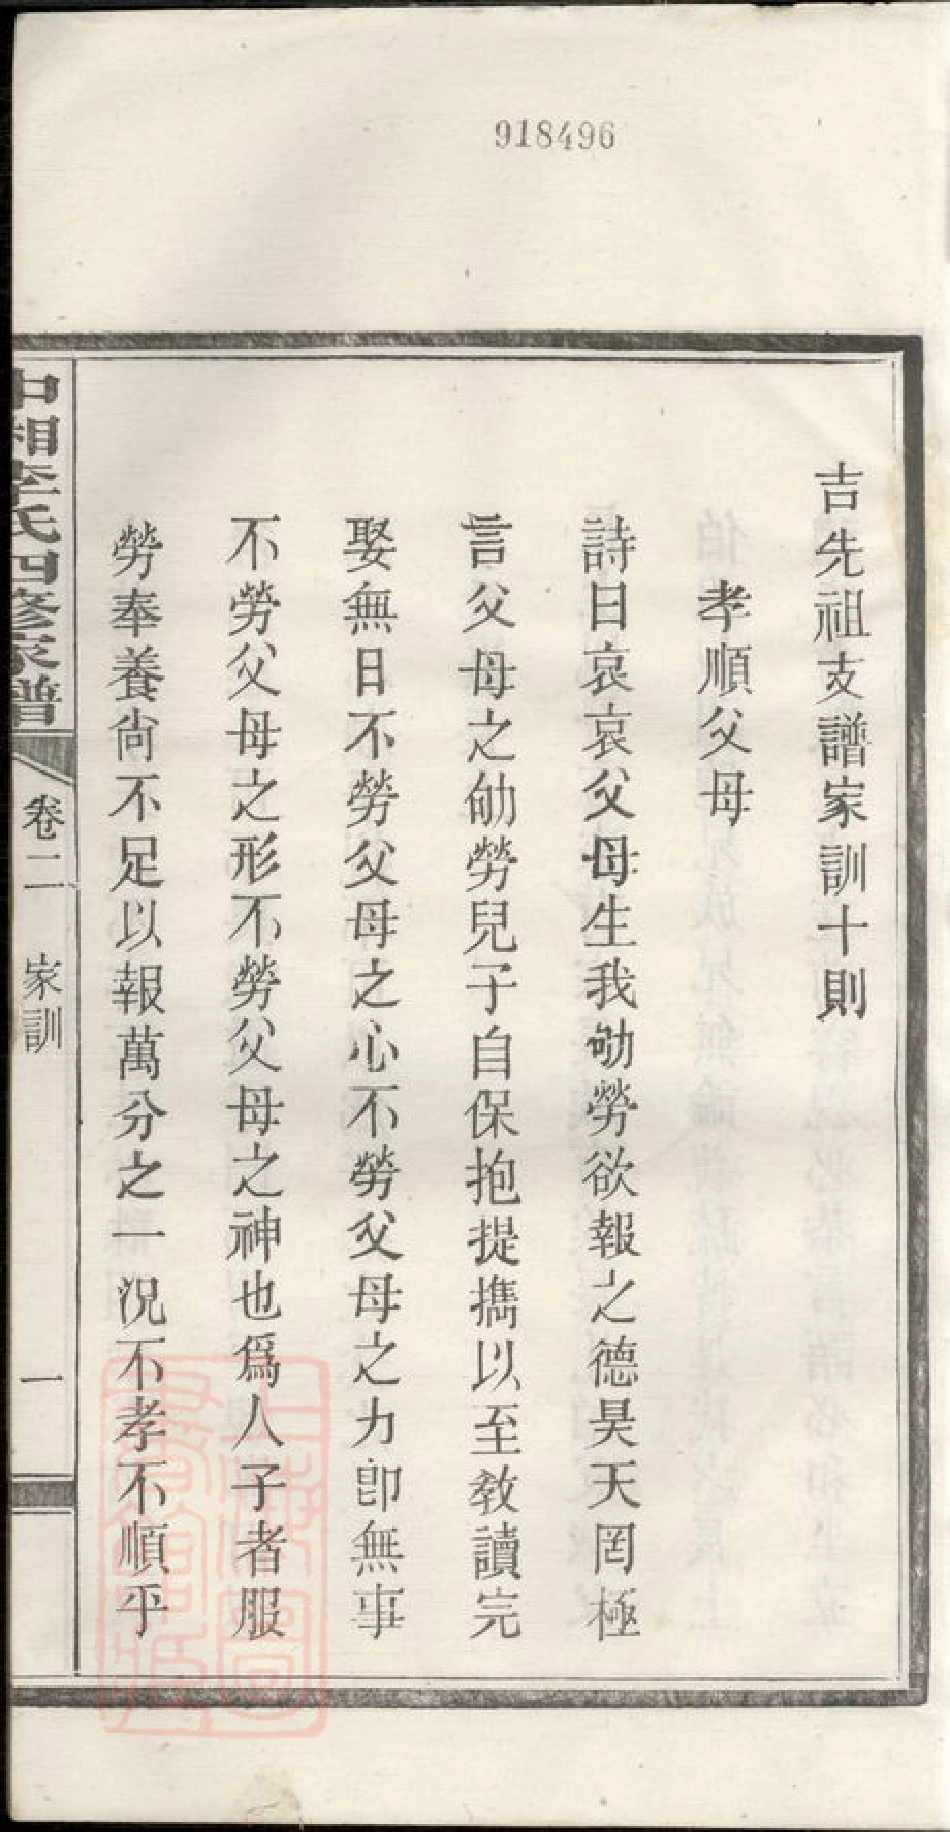 918496
吉先祖支譜家訓十則
孝順父母
詩曰哀哀父母生我劬勞欲報之德昊天罔極
言父母之劬勞兒子自保抱提攜以至教讀完
娶無日不勞父母之心不勞父母之力卽無事
不勞父母之形不勞父母之神也爲人子者服
勞奉養尙不足以報萬分之一況不孝不順乎
中湘李氏四修家譜
卷二
家訓
一
上海圖書館藏